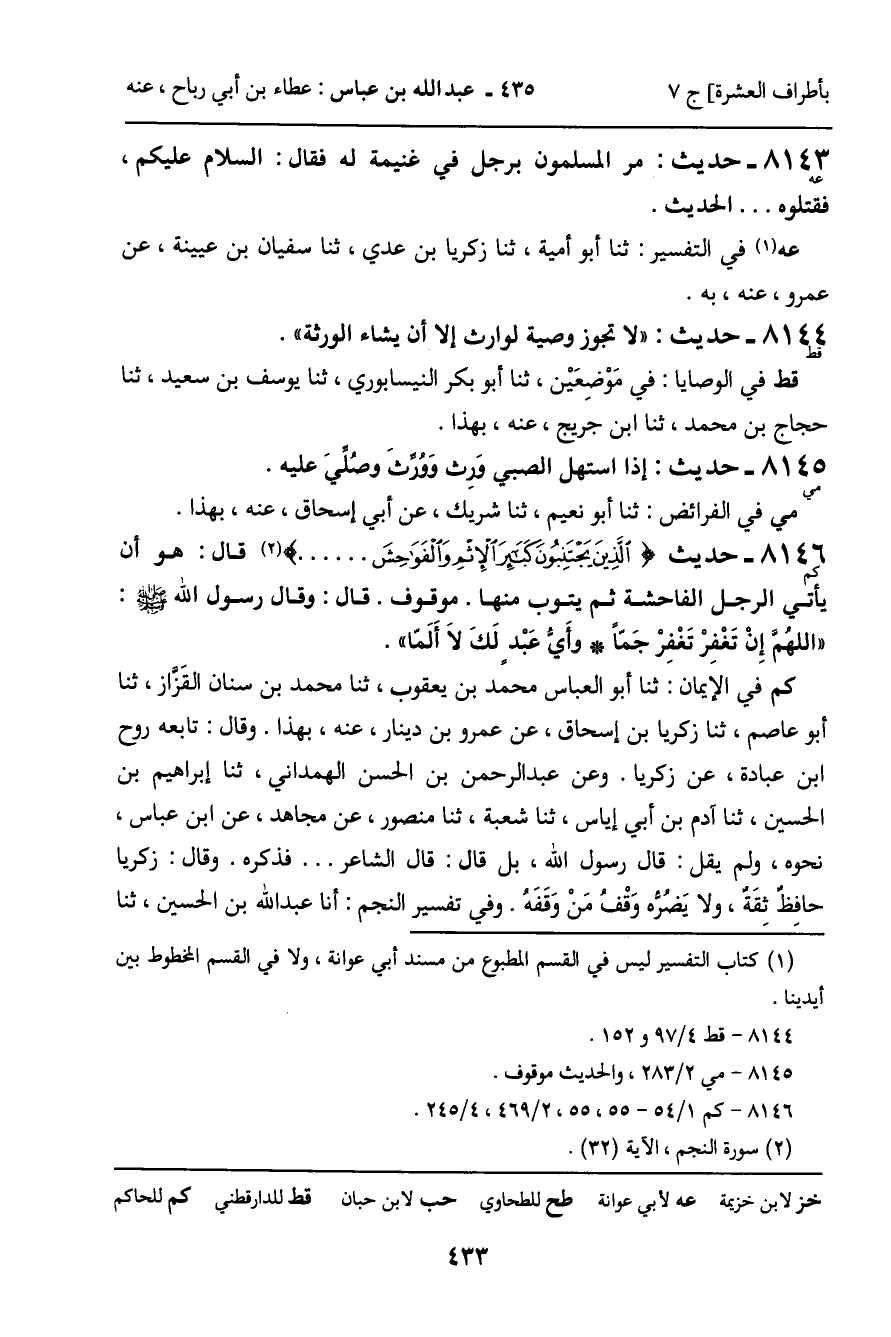 بأطراف العشرة] ج ٧ ٤٣٥ ـ عبدالله بن عباس : عطاء بن أبي رباح ، عنه
٨١٤٣ ـ حديث : مر المسلمون برجل في غنيمة له فقال : السلام عليكم ،
عه
فقتلوه . . . الحديث .
عه(١) في التفسير : ثنا أبو أمية ، ثنا زكريا بن عدي ، ثنا سفيان بن عيينة ، عن
عمرو ، عنه ، به .
٨١٤٤ ـ حديث : «لا تجوز وصية لوارث إلا أن يشاء الورثة» .
قط
قط في الوصايا : في مَوْضِعَيْن ، ثنا أبو بكر النيسابوري ، ثنا يوسف بن سعيد ، ثنا
حجاج بن محمد ، ثنا ابن جريج ، عنه ، بهذا .
٨١٤٥ ـ حديث : إذا استهل الصبي وَرِث وَوُرِّثَ وصُلِّيَ عليه .
مي
مي في الفرائض : ثنا أبو نعيم ، ثنا شريك ، عن أبي إسحاق ، عنه ، بهذا .
٨١٤٦ ـ حديث ﴿ ٱلَّذِينَ يَجْتَنِبُونَ كَبَٰٓئِرَ ٱلْإِثْمِ وَٱلْفَوَٰحِشَ . . . . . .﴾(٢) قال : هو أن
كم
يأتي الرجل الفاحشة ثم يتوب منها . موقوف . قال : وقال رسول الله ﷺ :
«اللهُمَّ إِنْ تَغْفِرْ تَغْفِرْ جَمّاً * وأَيُّ عَبْدٍ لَكَ لاَ أَلَمّا» .
كم في الإيمان : ثنا أبو العباس محمد بن يعقوب ، ثنا محمد بن سنان القَزَّاز ، ثنا
أبو عاصم ، ثنا زكريا بن إسحاق ، عن عمرو بن دينار ، عنه ، بهذا . وقال : تابعه روح
ابن عبادة ، عن زكريا . وعن عبدالرحمن بن الحسن الهمداني ، ثنا إبراهيم بن
الحسين ، ثنا آدم بن أبي إياس ، ثنا شعبة ، ثنا منصور ، عن مجاهد ، عن ابن عباس ،
نحوه ، ولم يقل : قال رسول الله ، بل قال : قال الشاعر . . . فذكره . وقال : زكريا
حافِظٌ ثِقَةٌ ، ولا يَضُرُّه وَقْفُ مَنْ وَقَفَهُ . وفي تفسير النجم : أنا عبدالله بن الحسين ، ثنا
(١) كتاب التفسير ليس في القسم المطبوع من مسند أبي عوانة ، ولا في القسم المخطوط بين
أيدينا .
٨١٤٤ – قط ٩٧/٤ و ١٥٢ .
٨١٤٥ – مي ٢٨٣/٢ ، والحديث موقوف .
٨١٤٦ – كم ٥٤/١ – ٥٥ ، ٥٥ ، ٤٦٩/٢ ، ٢٤٥/٤ .
(٢) سورة النجم ، الآية (٣٢) .
خز لابن خزيمة عه لأبي عوانة طح للطحاوي حب لابن حبان قط للدارقطني كم للحاكم
٤٣٣